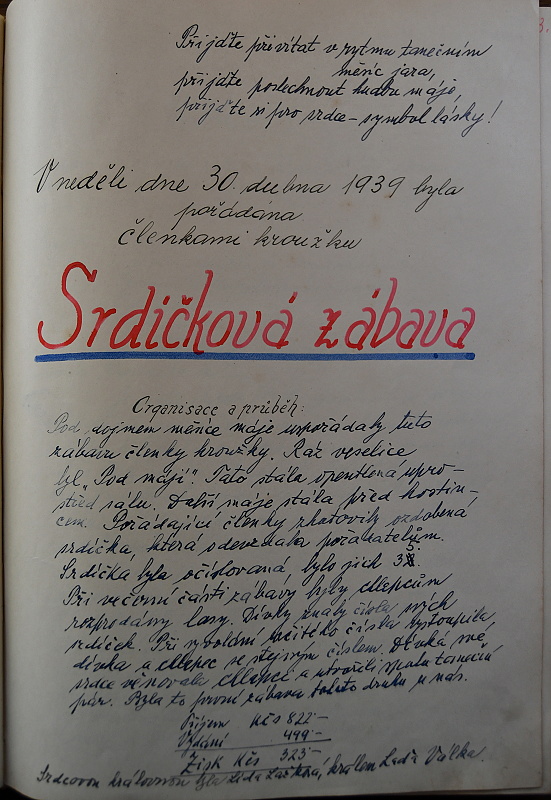 Přijďte přivítat v rytmu tanečním
měsíc jara,
přijďte poslechnout hudbu máje,
přijďte si pro srdce – symbol lásky!
V neděli dne 30. dubna 1939 byla
pořádána
členkami kroužku
Srdíčková zábava
Organisace a průběh:
Pod dojmem měsíce máje uspořádaly tuto
zábavu členky kroužku. Ráz veselice
byl „Pod májí“. Tato stála opentlená upro-
střed sálu. Další máje stála před hostin-
cem. Pořádající členky zhotovily ozdobená
srdíčka, která odevzdala pořadatelům.
Srdíčka byla očíslovaná bylo jich
Při večerní části zábavy byly chlapcům
rozprodány losy. Dívky znaly čísla svých
srdíček. Při vyvolání určitého čísla vystoupila
dívka a chlapec se stejným číslem. Dívka své
srdce věnovala chlapci a utvořili spolu taneční
pár. Byla to první zábava tohoto druhu u nás.
Příjem Kčs 822·–
Vydání 499·–
Zisk Kčs 323·–
Srdcovou královnou byla Lída královem Laďa Válka.